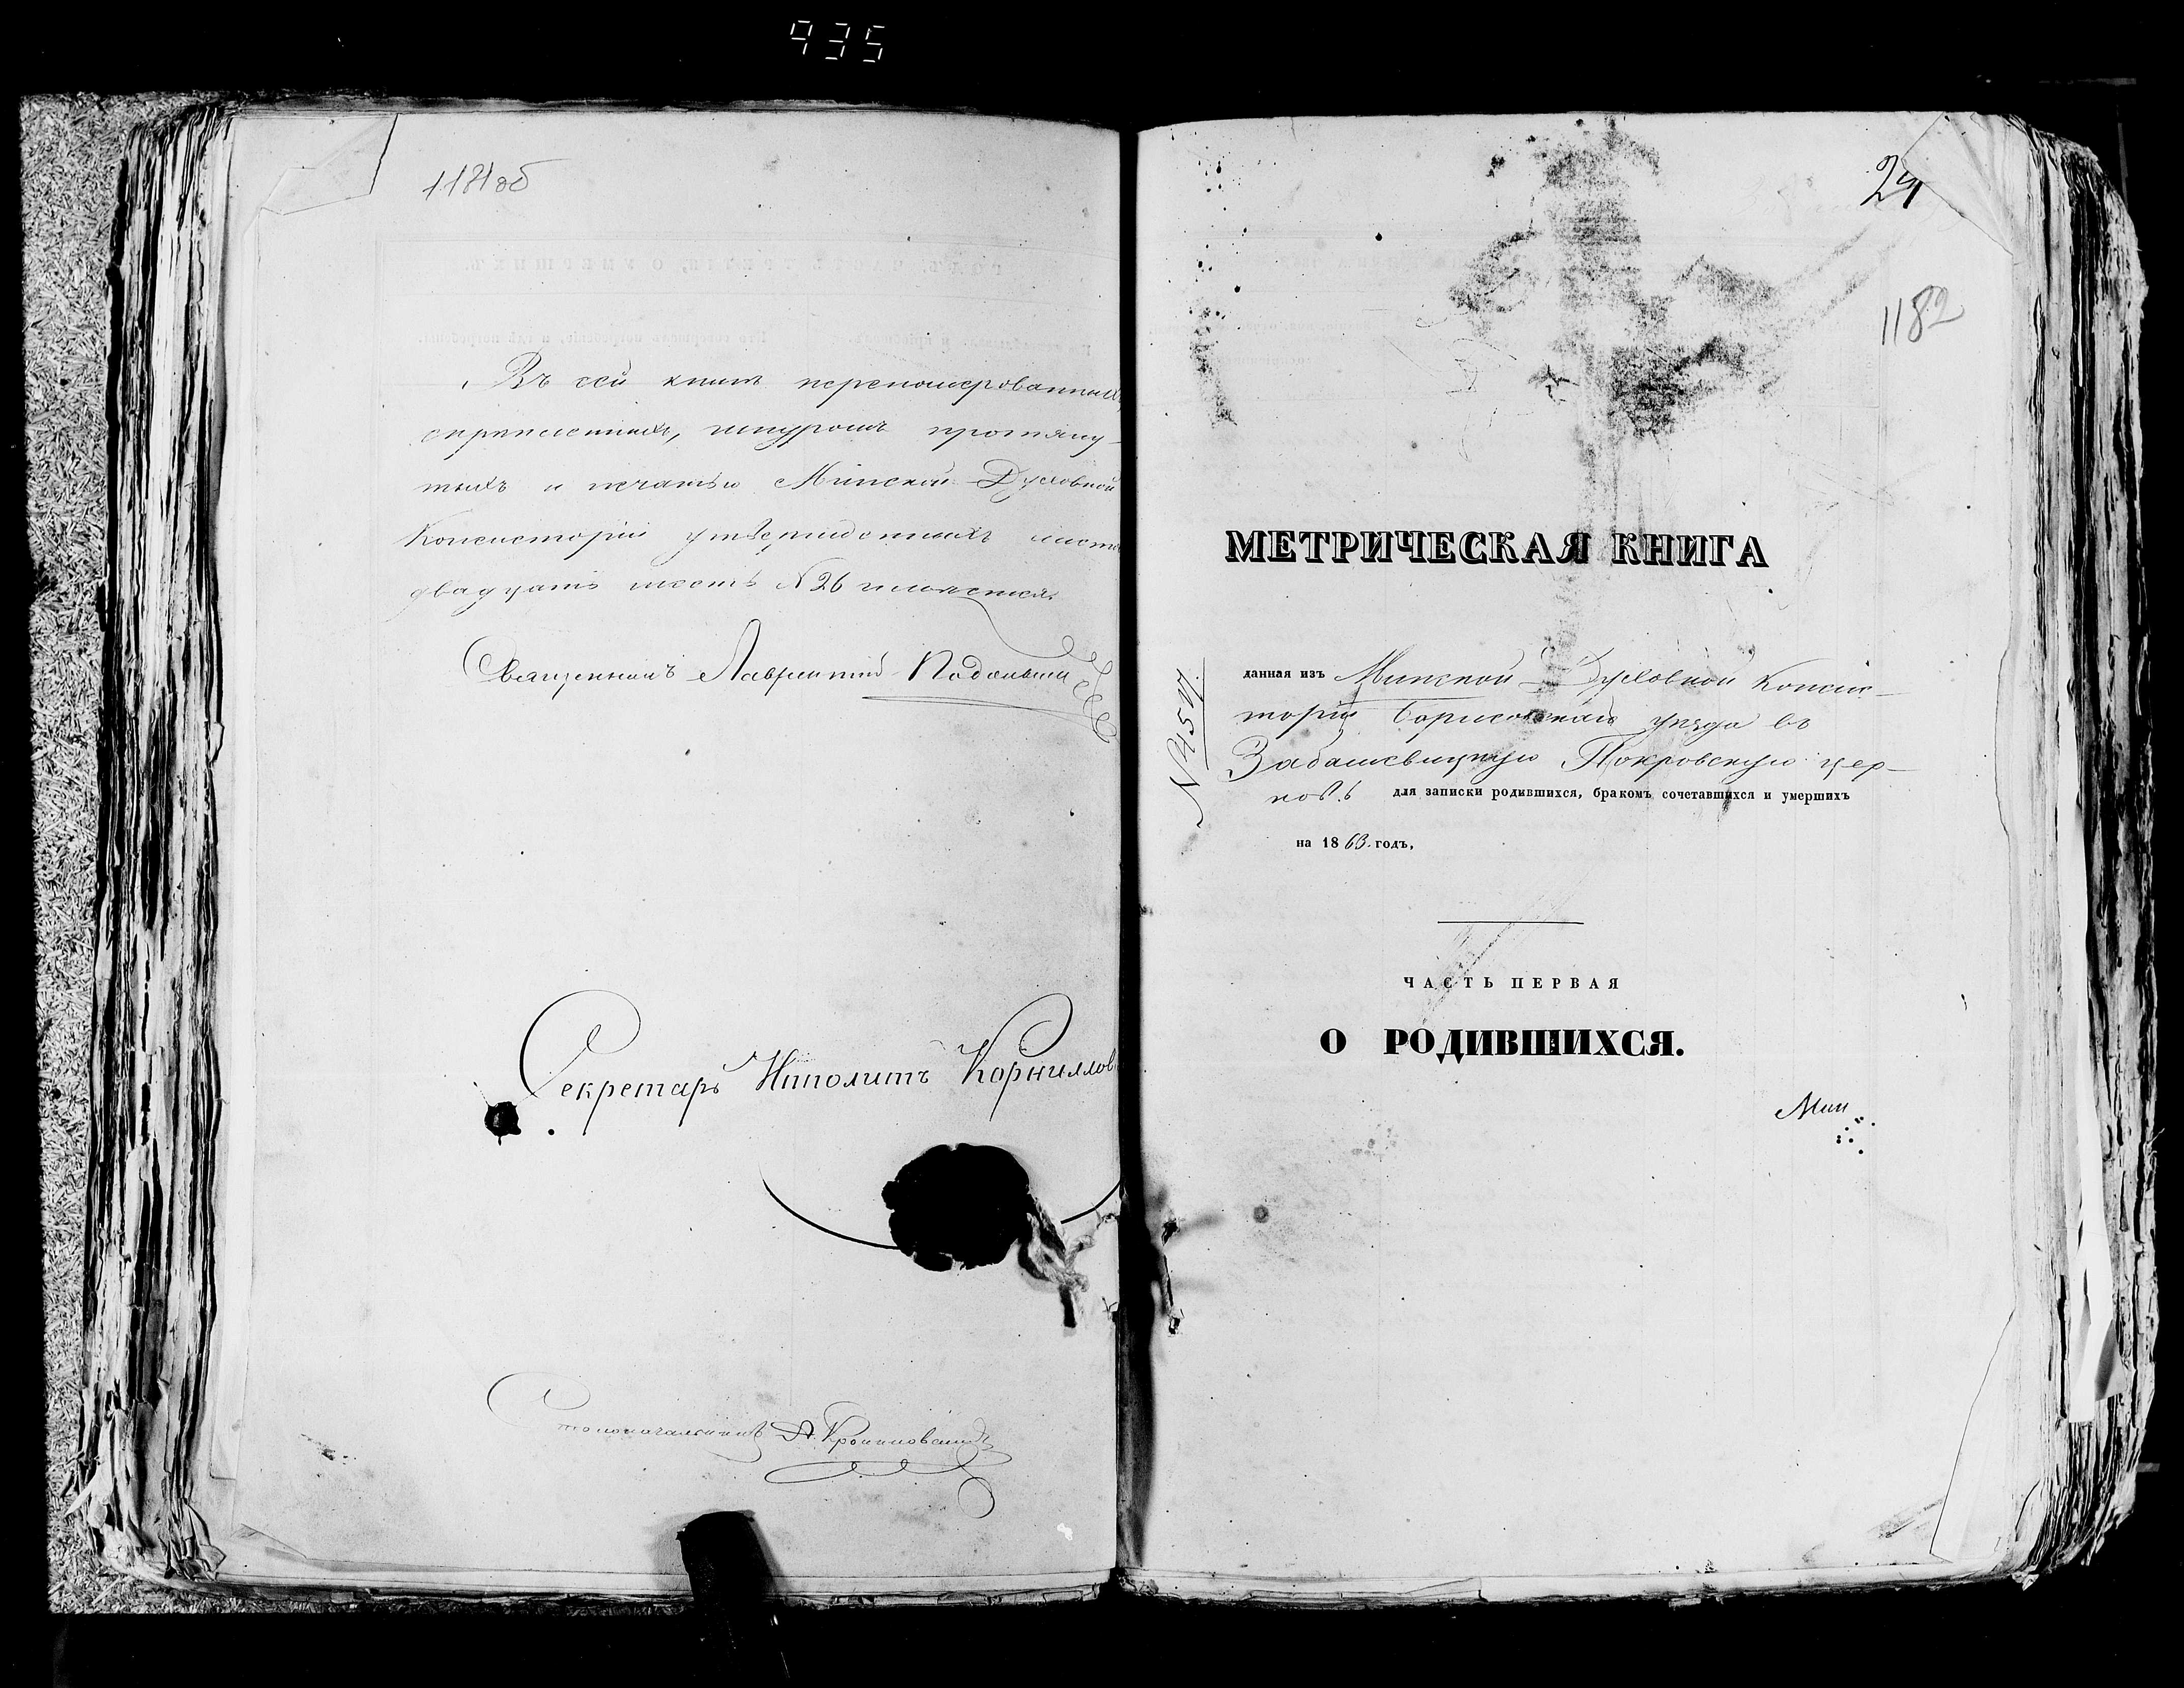 935
1181об
Въ сей книгѣ перенумерованныхъ,
скрѣпленныхъ, шнуромъ протяну-
тыхъ и печатью Минской Духовной
Консисторіи утвержденныхъ листо
двадцать шесть N 26 числится.
Священникъ Лаврентій
Секретарь Иполитъ Корниллов
Столоначальникъ
24
1182
МЕТРИЧЕСКАЯ КНИГА
данная изъ Минской Духовной Консис-
торіи Борисовскаго уѣзда въ
Забашевицкую Покровскую цер-
ковь для записки родившихся, бракомъ сочетавшихся и умершихъ
на 1863 годъ,
ЧАСТЬ ПЕРВАЯ
О РОДИВШИХСЯ.
Мин